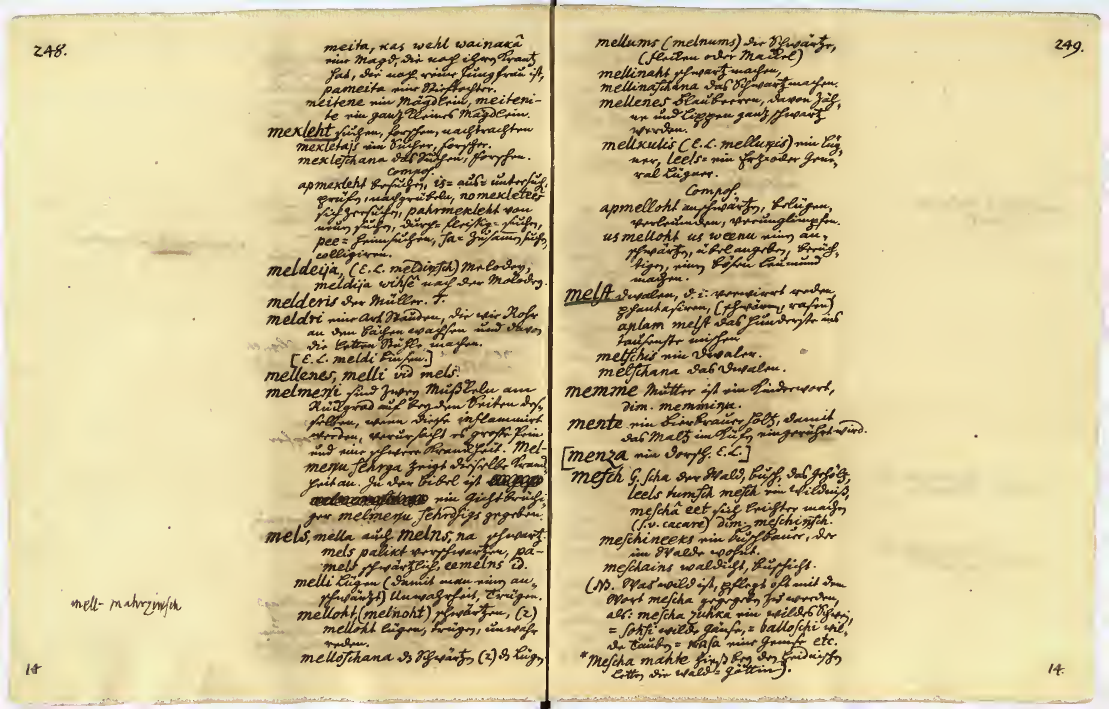 248.
meita, kas wehl wainakâ
eine Magd, die noch ihren Krantz
hat, die noch reine Jungfrau ist,
pameita eine Stieftochter.
meitene ein Mägdlein, meiteni-
te ein gantz kleines Mägdlein.
mekleht suchen, forschen, nachtrachten
mekletajs ein Sucher, forscher.
mekleschana das Suchen, forschen.
Compos.
apmekleht besuchen, is= aus= untersuch,
prüfen, nachgrübeln, nomekletees
sich zersuchen, pahrmekleht von
neuen suchen, durch= fleissig= suchen,
pee= heimsuchen, sa= zusammen suchen
colligiren.
meldeija, (E.L. meldinsch) Melodey,
meldija wihsê nach der Melodey.
melderis der Müller. †.
meldri eine Art Stauden, die wie Rohr
an den Bächen wachsen und davon
die Letten Stühle machen.
[E.L. meldi binsen.]
mellenes, melli vid mels.
melmeni sind zwey Mußkeln am
Rückgrad auf beyden Seiten des-
selben, wenn diese inflammirt
werden, verursacht es große Pein
und eine schwere Krankheit. Mel-
menu sehrga zeigt dieselbe Krank
heit an. In der Bibel ist
ein Gichtbrüchi-
ger melmenu sehrdsigs gegeben.
mels, mella auch melns, na schwartz.
mels palikt verschwartzen, pa-
mels schwärtzlich, eemelns id.
melli Lügen (damit man einen an-
schwärtzt) Unwahrheit, Trügen.
melloht (melnoht) schwärtzen, (2)
melloht lügen, trügen, unwahr
reden.
melloschana ds Schwärtzen (2) ds Lügen
mell- mahrzinsch
14
249.
mellums (melnums) die Schwärtze,
(flecken oder Mackel)
mellinaht schwartz machen,
mellinaschana das Schwartzmachen.
mellenes Blaubeeren, davon Zäh-
ne und Lippen gantz schwartz
werden.
melkulis (E.L. mellukis) ein Lüg-
ner, leels= ein Ertz= oder Gene-
ral Lügner.
Compos.
apmelloht anschwärtzen, belügen,
verleumden, verunglimpfen.
us melloht us weenu einen an-
schwärtzen, übel angeben, berüch-
tigen, einen bösen Leumund
machen.
melst dwalen, d. i. verwirrt reden,
phantasiren, (schwärmen, rasen)
aplam melst das hunderste ins
tausenste mischen
melschis ein Dwaler.
melschana das Dwalen.
memme Mutter ist ein Kinderwort,
dim. memmina.
mente ein Bierbrauer holtz, damit
das Maltz im Küfen eingerührt wird.
[menza ein Dorsch. E.L.]
mesch G. scha der Wald, busch, das Gehöltz,
leels tumsch mesch ein Wildniß,
meschâ eet sich leichter machen
(s.v. cacare) dim. meschinsch.
meschineeks ein buschbauer, der
im Walde wohnt.
meschains waldicht, buschicht.
(NB. Was wild ist, pflegt oft mit dem
Wort mescha gegeben zu werden,
als: mescha zuhka ein wildes Schwein,
= sohsi wilde Gänse, = balloschi wil-
de Tauben = kasa eine Gemse etc.
*Mescha mahte hieß bey den heidnischen
Letten die Wald= Göttin).
14.